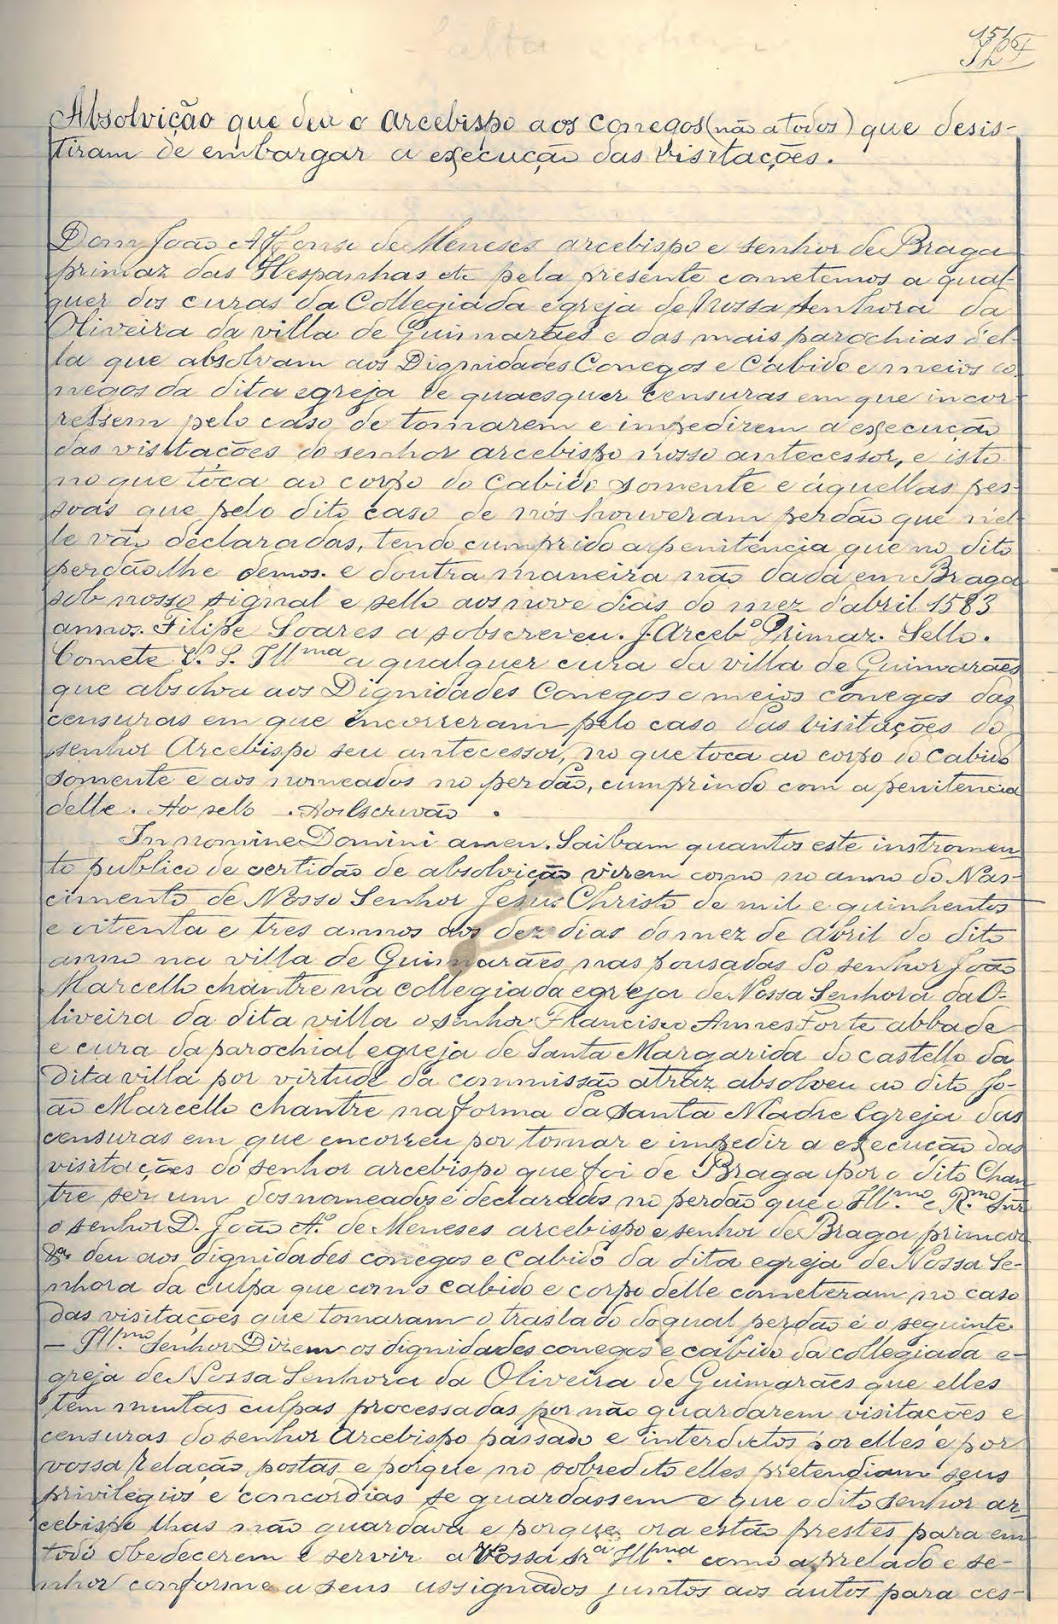 Absolvição que deu o arcebispo aos conegos (não a todos) que desis-
tiram de embargar a execução das visitações.
Dom João Affonso de Meneses arcebispo e senhor de Braga
primaz das Hespanhas etc pela presente cometemos a qual-
quer dos curas da Collegiada egreja de Nossa Senhora da
Oliveira da villa de Guimarães e das mais parochias del-
la que absolvam aos Dignidades Conegos e Cabido e meios co-
negos da dita egreja de quaesquer censuras em que incor-
ressem pelo caso de tomarem e impedirem a execução
das visitações do senhor arcebispo nosso antecessor, e isto
no que toca ao corpo do Cabido somente e áquellas pes-
soas que pelo dito caso de nós houveram perdão que nel-
le vão declaradas, tendo cumprido a penitencia que no dito
perdão lhe demos. e doutra maneira não dada em Braga
sob nosso signal e sello aos nove dias do mez d'abril 1583
annos. Filipe Soares a sobscreveu. J. Arcebº Primaz. Sello.
Comete V. S. Illma a qualquer cura da villa de Guimarães
que absolva aos Dignidades Conegos e meios conegos das
censuras em que incorreram pelo caso das visitações do
senhor Arcebispo seu antecessor, no que toca ao corpo do Cabido
somente e aos nomeados no perdão, cumprindo com a penitencia
delle. Ao sello. Ao Escrivão.
In nomine Domini amen. Saibam quantos este instromen-
to publico de certidão de absolvição virem como no anno do Nas-
cimento de Nosso Senhor Jesus Christo de mil e quinhentos
e oitenta e tres annos aos dez dias do mez de Abril do dito
anno na villa de Guimarães nas pousadas do senhor João
Marcello chantre na collegiada egreja de Nossa Senhora da O-
liveira da dita villa o senhor Francisco Annes Forte abbade
e cura da parochial egreja de Santa Margarida do castello da
dita villa por virtude da commissão atraz absolveu ao dito Jo-
ão Marcello chantre na forma da Santa Madre Egreja das
censuras em que encorreu por tomar e impedir a execução das
visitações do senhor arcebispo que foi de Braga por o dito Chan-
tre ser um dos nomeados e declarados no perdão que o Illmo e Rmo Snr
o senhor D. João Aº de Meneses arcebispo e senhor de Braga primaz
&ª deu aos dignidades conegos e Cabido da dita egreja de Nossa Se-
nhora da culpa que com o cabido e corpo delle cometeram no caso
das visitações que tomaram o traslado do qual perdão é o seguinte
— Illmo Senhor Dizem os dignidades conegos e cabido da collegiada e-
greja de Nossa Senhora da Oliveira de Guimarães que elles
tem muitas culpas processadas por não guardarem visitações e
censuras do senhor Arcebispo passado e interdictos por elles e por
vossa Relação postas e porque no sobredito elles pretendiam seus
privilegios e concordias se guardassem e que o dito senhor ar-
cebispo lhas não guardava e porque ora estão prestes para em
todo obedecerem e servir a Vossa Srª Illma como a prelado e se-
nhor conforme a seus assignados juntos aos autos para ces-